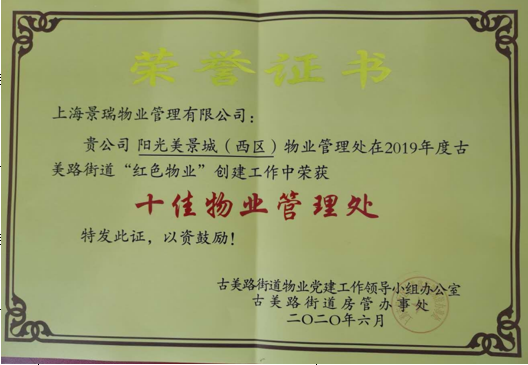 荣誉证书
上海景瑞物业管理有限公司：
贵公司 阳光美景城（西区）物业管理处在2019年度古
美路街道“红色物业”创建工作中荣获
十佳物业管理处
特发此证，以资鼓励！
古美路街道物业党建工作领导小组办公室
古美路街道房管办事处
二〇二〇年六月